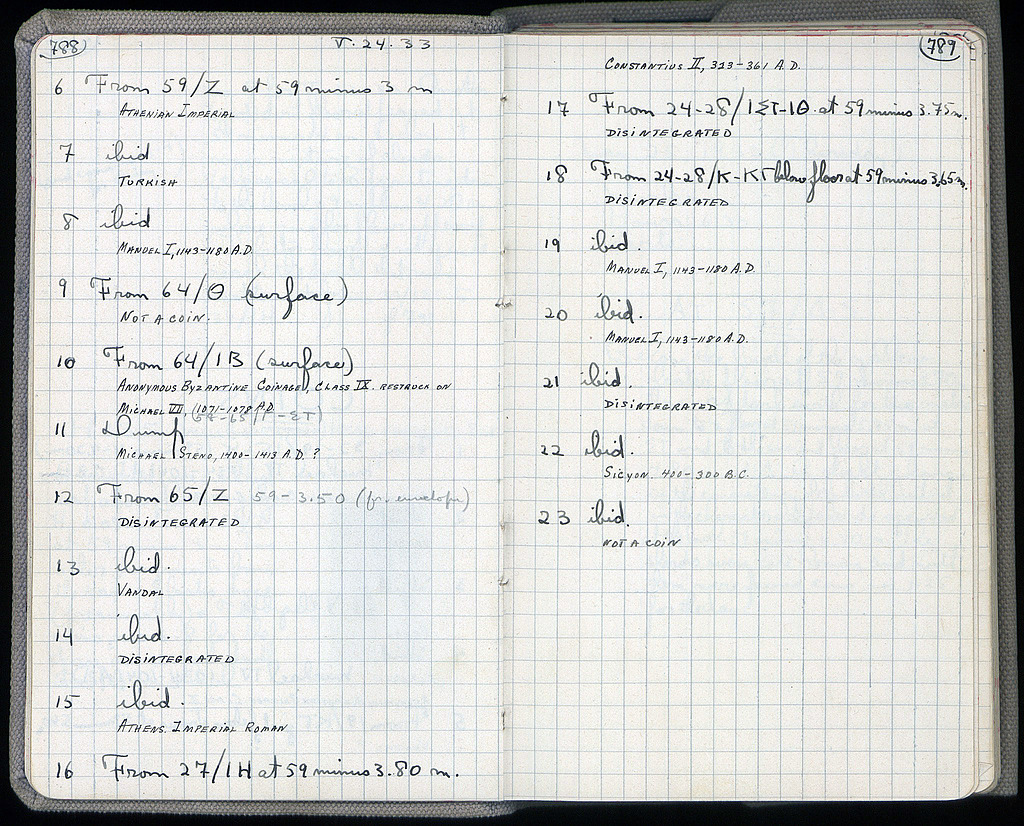 788
V. 24. 33
6 From 59/Z at 59 minus 3 m
ATHENIAN IMPERIAL
7 ibid
TURKISH
8 ibid
MANUEL I, 1143-1180 A.D.
9 From 64/Θ (surface)
NOT A COIN.
10 From 64/IB (surface)
ANONYMOUS BYZANTINE COINAGE, CLASS IX. RESTRUCK ON
MICHAEL VII, (1071-1078 A.D.
11 Dump
MICHAEL STENO, 1400-1413 A.D. ?
12 From 65/Z 59-3.50 (fr. envelope)
DISINTEGRATED
13 ibid.
VANDAL
14 ibid.
DISINTEGRATED
15 ibid.
ATHENS. IMPERIAL ROMAN
16 From 27/IH at 59 minus 3.80 m.
789
CONSTANTIUS II, 323-361 A.D.
17 From 24-28/IΣT-IΘ. at 59 minus 3.75m.
DISINTEGRATED
18 From 24-28/K-KΓ below floor at 59 minus 3.65m.
DISINTEGRATED
19 ibid.
MANUEL I, 1143-1180 A.D.
20 ibid.
MANUEL I, 1143-1180 A.D.
21 ibid.
DISINTEGRATED
22 ibid.
SICYON. 400-300 B.C.
23 ibid.
NOT A COIN